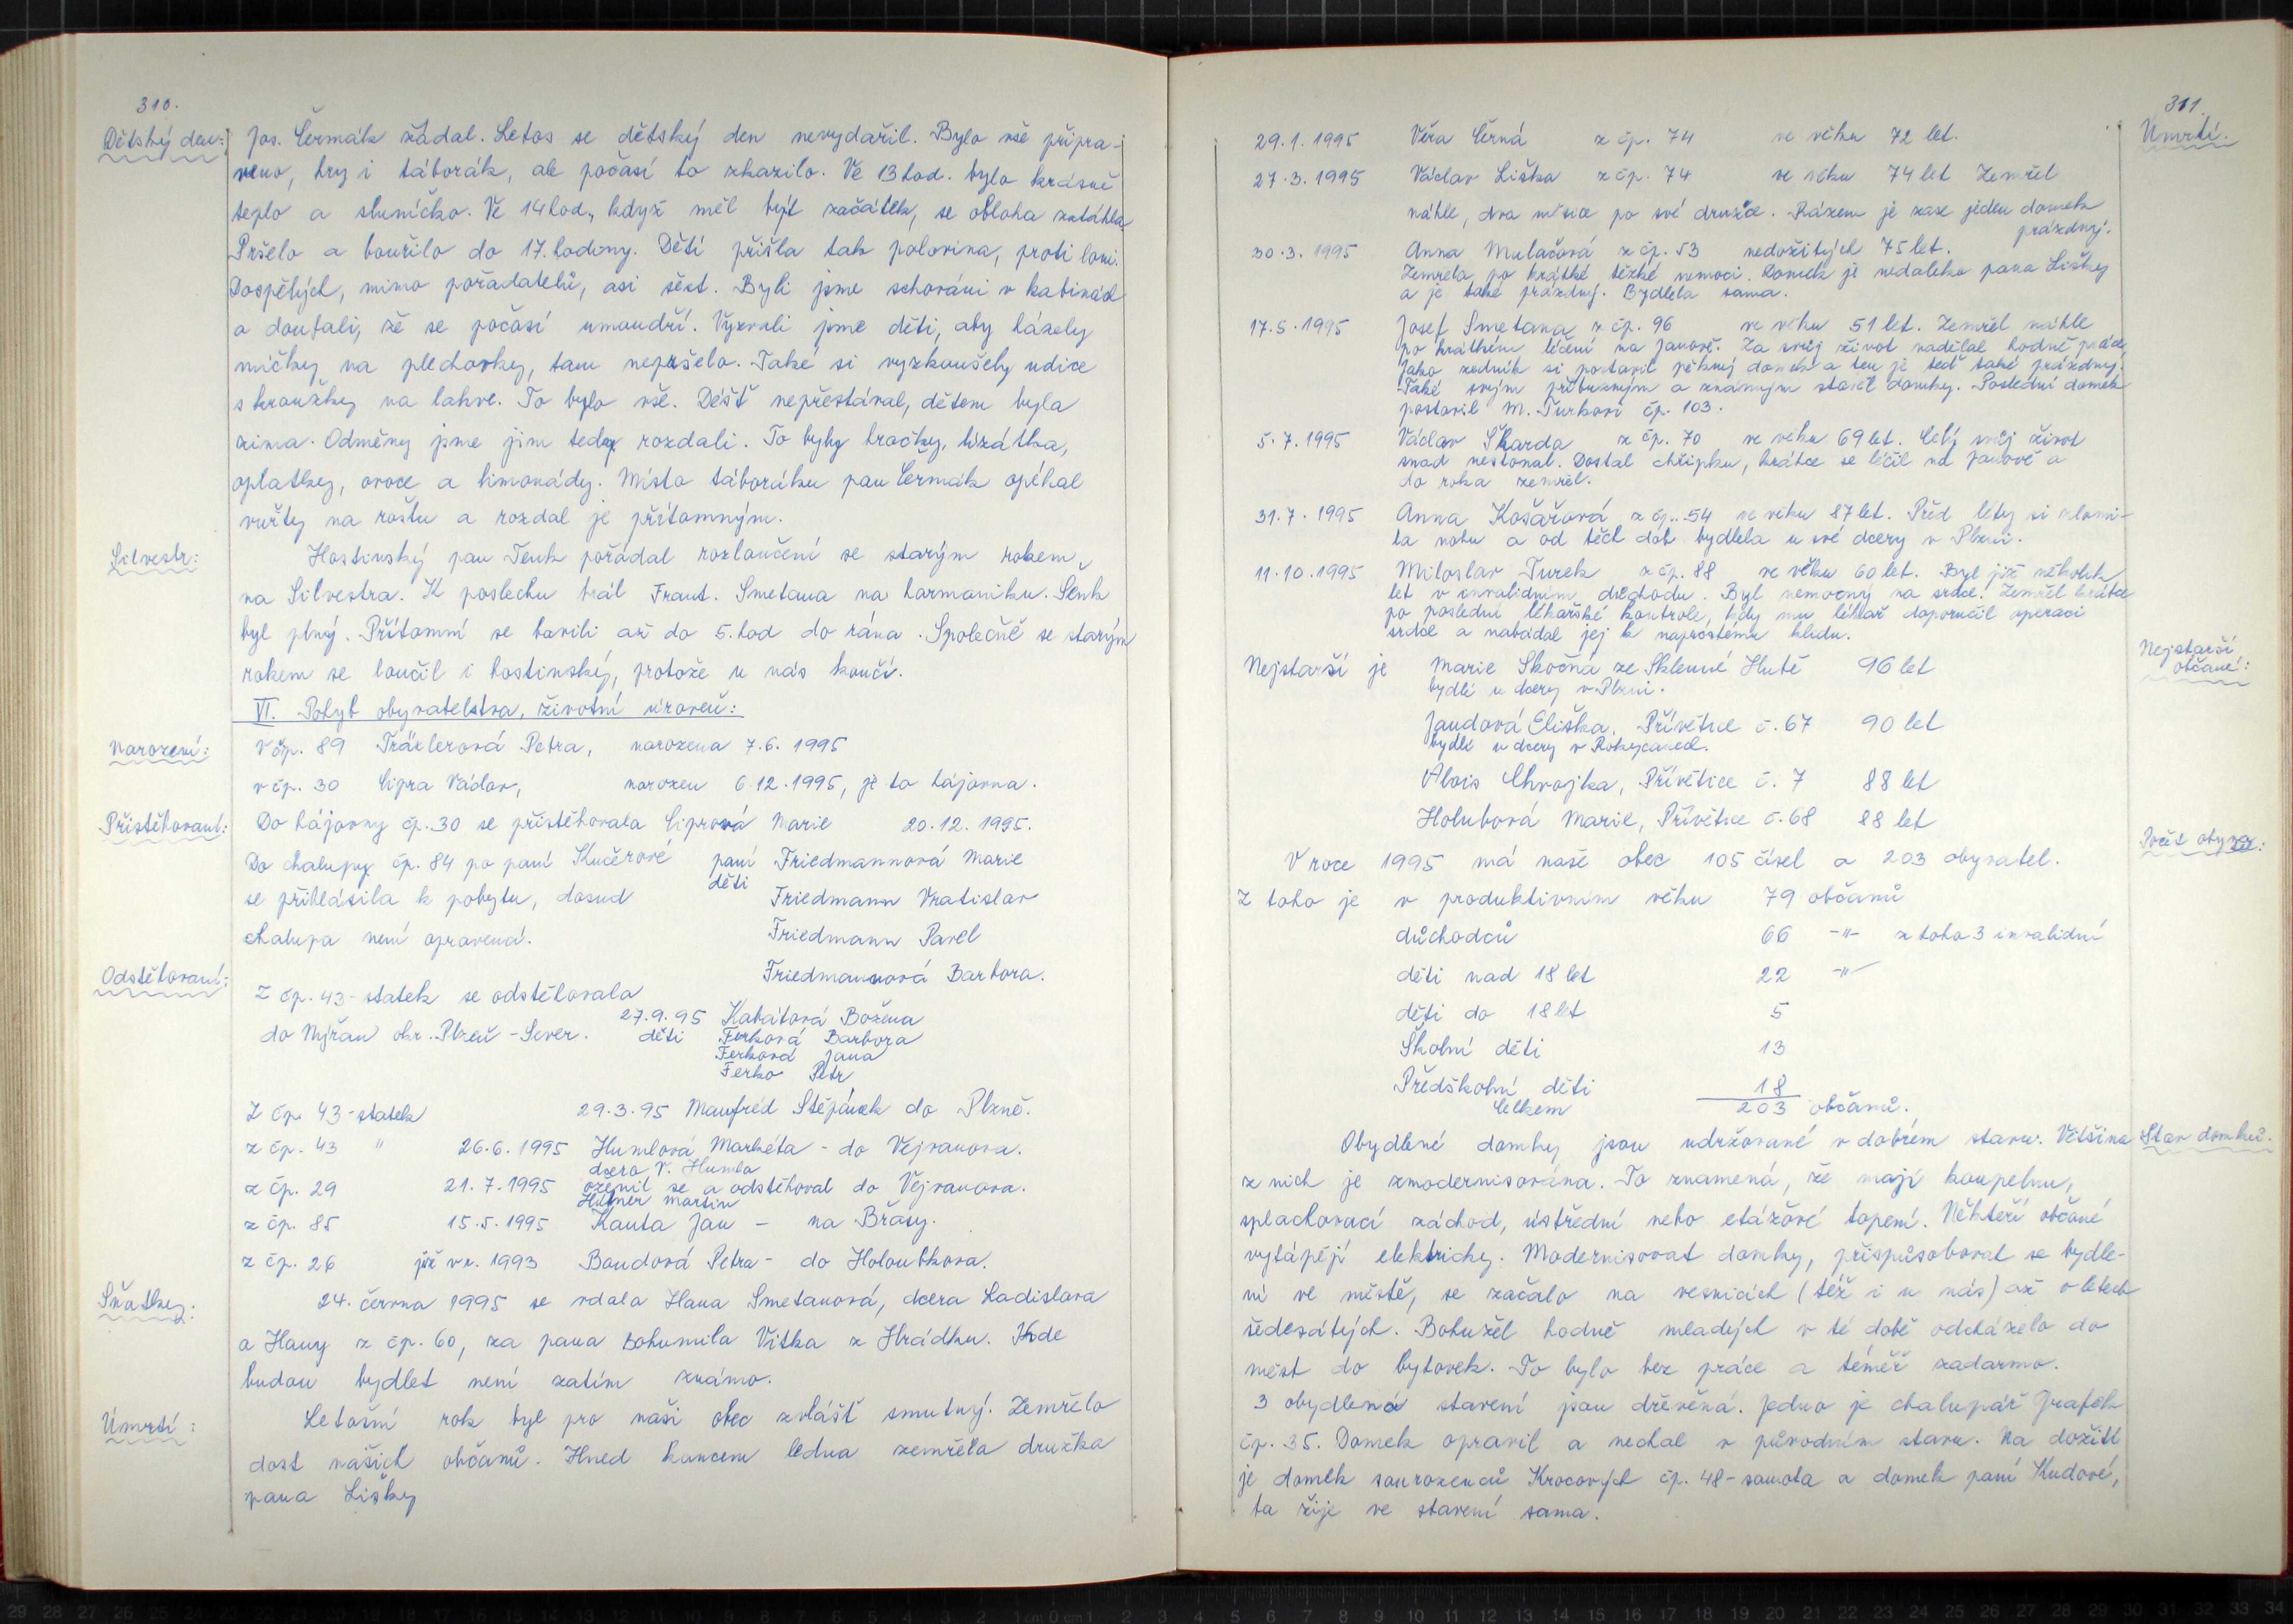 310.
Dětský den:
Jos. Čermák žádal. Letos se dětský den nevydařil. Bylo vše připra-
veno, hry i táborák, ale počasí to zkazilo. Ve 13 hod. bylo krásně
teplo a sluníčko. Ve 14 hod., když měl být začátek, se obloha zatáhla.
Pršelo a bouřilo do 17. hodiny. Dětí přišla tak polovina, proti loni.
Dospělých, mimo pořadatelů, asi šest. Byli jsme schováni v kabinách
a doufali, že se počasí umoudří. Vyzvali jsme děti, aby házely
míčky na plechovky, tam nepršelo. Také si vyzkoušely udice
s kroužky na lahve. To bylo vše. Déšť nepřestával, dětem byla
zima. Odměny jsme jim tedy rozdali. To byly hračky, lízátka,
oplatky, ovoce a limonády. Místo táboráku pan Čermák opékal
vuřty na roštu a rozdal je přítomným.
Silvestr:
Hostinský pan Tenk pořádal rozloučení se starým rokem,
na Silvestra. K poslechu hrál Frant. Smetana na harmoniku. Šenk
byl plný. Přítomní se bavili až do 5. hod do rána. Společně se starým
rokem se loučil i hostinský, protože u nás končí.
VI. Pohyb obyvatelstva, životní úroveň:
Narození:
V čp. 89 Träxlerová Petra, narozena 7.6. 1995
v čp. 30 Cipra Václav, narozen 6.12.1995, je to hájovna.
Přistěhovaní:
Do hájovny čp. 30 se přistěhovala Ciprová Marie 20.12. 1995.
Do chalupy čp. 84 po paní Kučerové paní Friedmannová Marie
se přihlásila k pobytu, dosud děti Friedmann Vratislav
chalupa není opravená. Friedmann Pavel
Friedmannová Barbora.
Odstěhovaní:
Z čp. 43 - statek se odstěhovala
27.9.95 Kabátová Božena
do Nýřan okr. Plzeň - Sever. děti Ferková Barbora
Ferková Jana
Ferko Petr
Z čp. 43 - statek 29.3.95 Manfred Štěpánek do Plzně.
z čp. 43 " 26.6.1995 Humlová Markéta - do Vejvanova.
dcera V. Humla
z čp. 29 21.7.1995 oženil se a odstěhoval do Vejvanova.
Hübner Martin
z čp. 85 15.5.1995 Kauta Jan - na Břasy.
z čp. 26 již v r. 1993 Baudová Petra - do Holoubkova.
Sňatky:
24. června 1995 se vdala Hana Smetanová, dcera Ladislava
a Hany z čp. 60, za pana Bohumila Vitka z Hrádku. Kde
budou bydlet není zatím známo.
Úmrtí:
Letošní rok byl pro naši obec zvlášť smutný. Zemřelo
dost našich občanů. Hned koncem ledna zemřela družka
pana Lišky
311.
Úmrtí.
29.1.1995 Věra Černá z čp. 74 ve věku 72 let.
27.3.1995 Václav Liška z čp. 74 ve věku 74 let Zemřel
náhle, dva měsíce po své družce. Rázem je zase jeden domek
prázdný.
30.3.1995 Anna Mulačová z čp. 53 nedožitých 75 let.
Zemřela po krátké těžké nemoci. Domek je nedaleko pana Lišky
a je také prázdný. Bydlela sama.
17.5.1995 Josef Smetana z čp. 96 ve věku 51 let. Zemřel náhle
po krátkém léčení na Janově. Za svůj život nadělal hodně práce,
Jako zedník si postavil pěkný domek a ten je teď také prázdný.
Také svým příbuzným a známým stavěl domky. Poslední domek
postavil M. Turkovi čp. 103.
5.7.1995 Václav Škarda z čp. 70 ve věku 69 let. Celý svůj život
snad nestonal. Dostal chřipku, krátce se léčil na Janově a
do roka zemřel.
31.7.1995 Anna Košařová z čp. 54 ve věku 87 let. Před léty si zlomi-
la nohu a od těch dob bydlela u své dcery v Plzni.
11.10.1995 Miloslav Turek z čp. 88 ve věku 60 let. Byl již několik
let v invalidním důchodu. Byl nemocný na srdce. Zemřel krátce
po poslední lékařské kontrole, kdy mu lékař doporučil operaci
srdce a nabádal jej k naprostému klidu.
Nejstarší občané:
Nejstarší je Marie Skočná ze Sklenné Hutě 96 let
bydlí u dcery v Plzni.
Jandová Eliška, Přívětice č. 67 90 let
bydlí u dcery v Rokycanech.
Alois Chvojka, Přívětice č. 7 88 let
Holubová Marie, Přívětice č. 68 88 let
Počet obyv.:
V roce 1995 má naše obec 105 čísel a 203 obyvatel.
Z toho je v produktivním věku 79 občanů
důchodců 66 -"- z toho 3 invalidní
děti nad 18 let 22 -"-
děti do 18 let 5
Školní děti 13
Předškolní děti 18
Celkem 203 občanů.
Stav domků.
Obydlené domky jsou udržované v dobrém stavu. Většina
z nich je zmodernisována. To znamená, že mají koupelnu,
splachovací záchod, ústřední nebo etážové topení. Někteří občané
vytápějí elektricky. Modernisovat domky, přispůsobovat se bydle-
ní ve městě, se začalo na vesnicích (též i u nás) až v letech
šedesátých. Bohužel hodně mladých v té době odcházelo do
měst do bytovek. To bylo bez práce a téměř zadarmo.
3 obydlená stavení jsou dřevěná. Jedno je chalupář Grafek
čp. 35. Domek opravil a nechal v původním stavu. Na dožití
je domek sourozenců Krocových čp. 48 - samota a domek paní Kudové,
ta žije ve stavení sama.